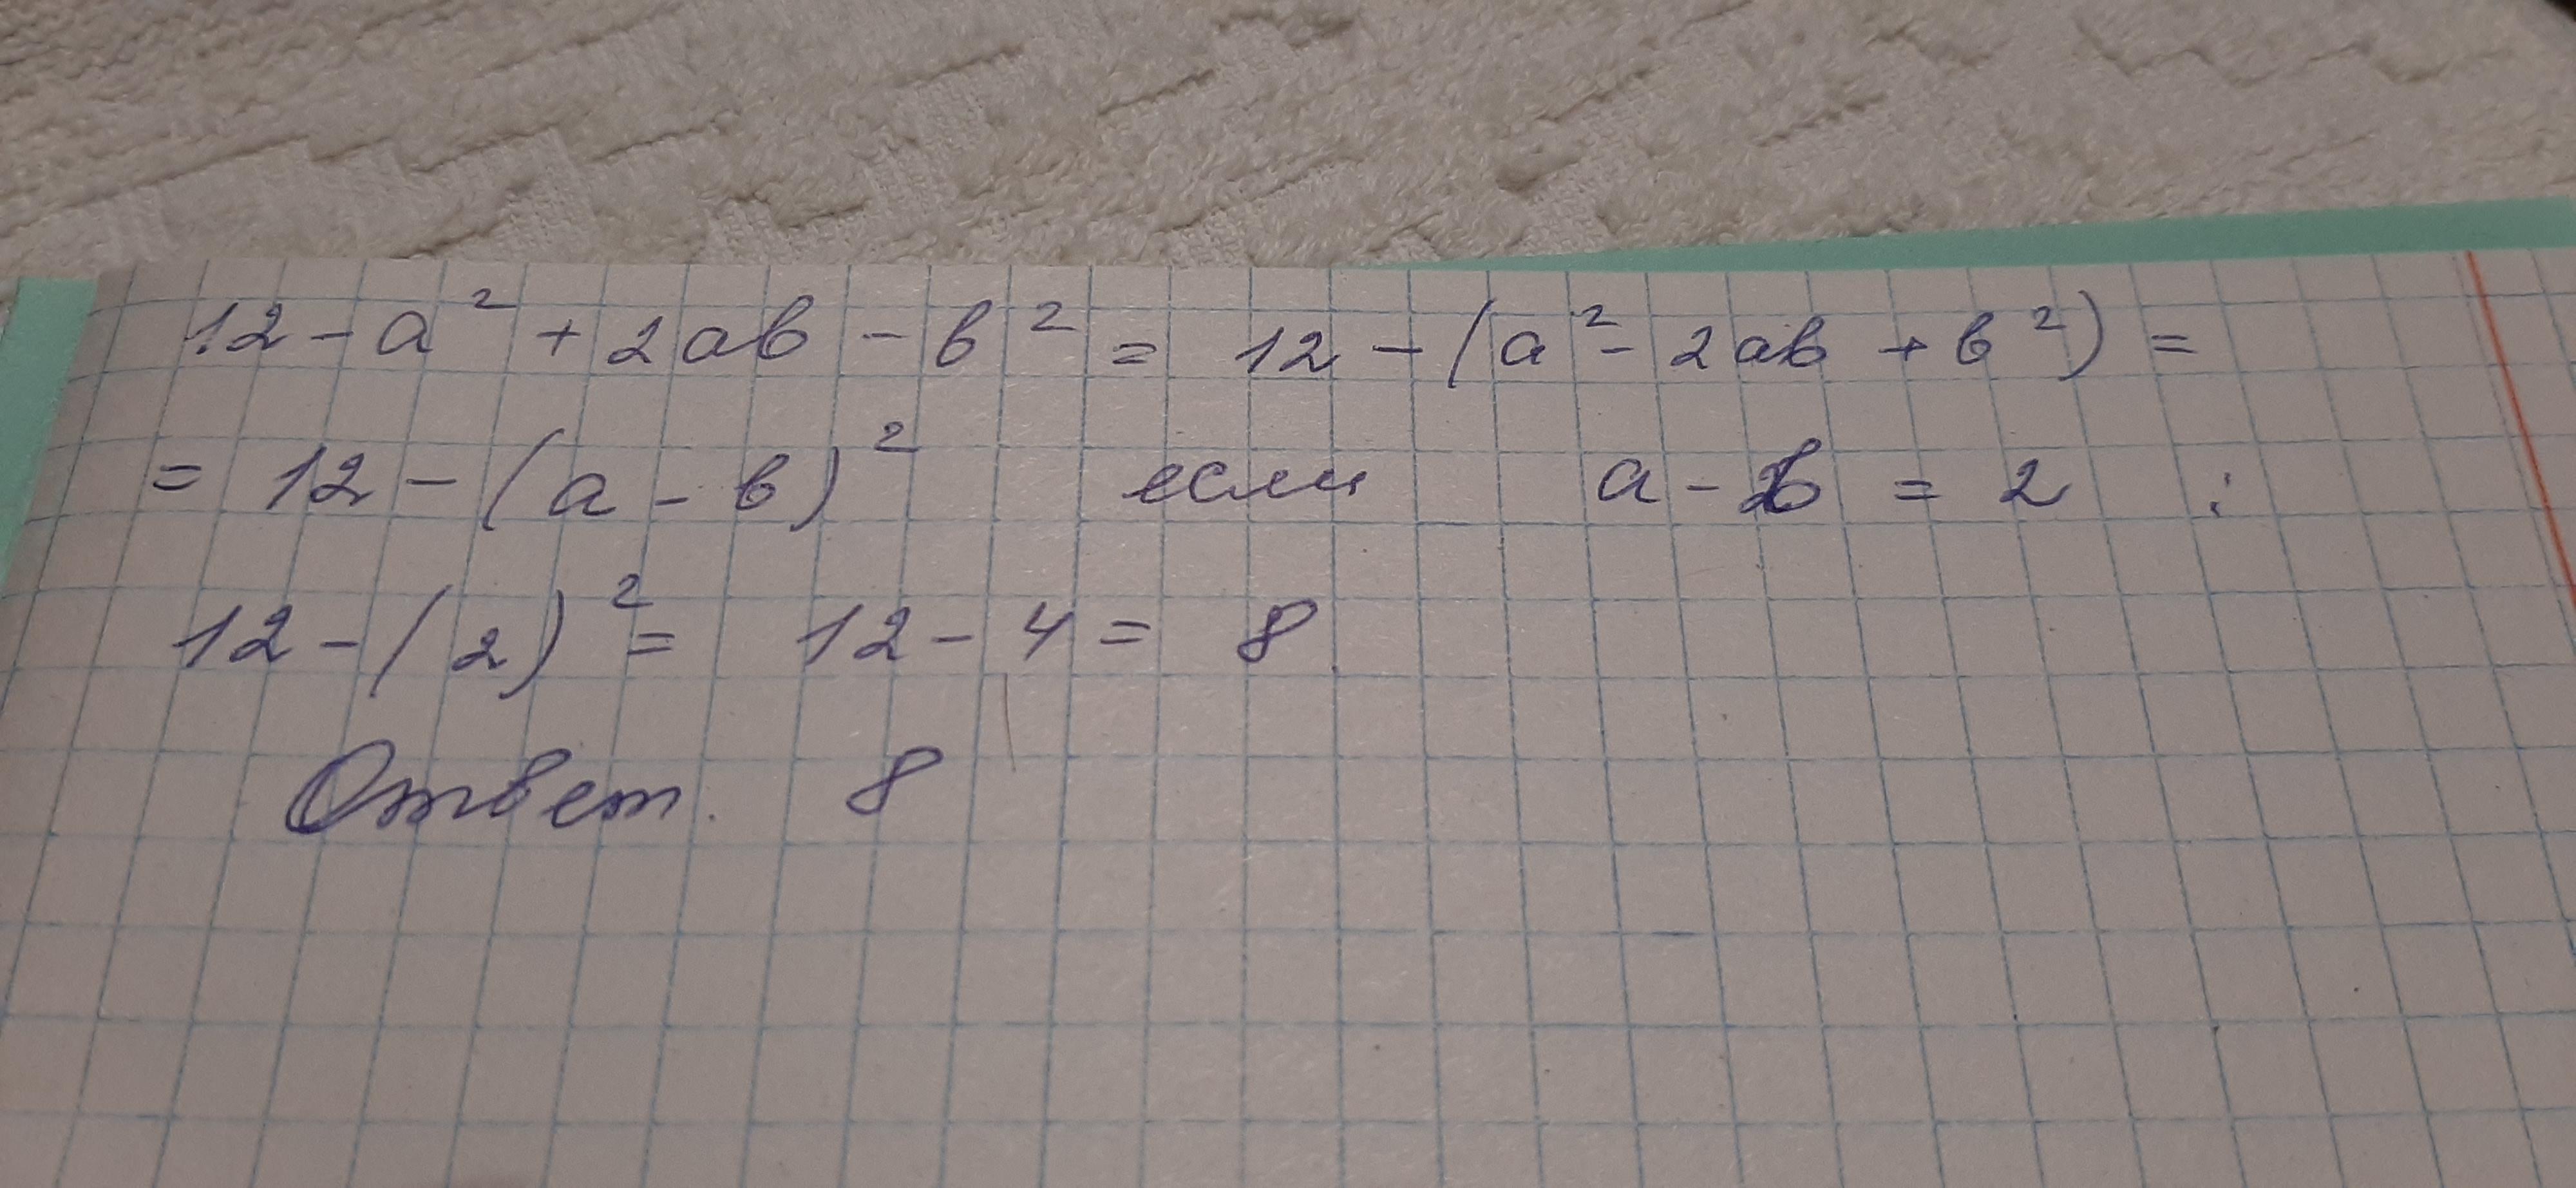 12 - a² + 2ab - b² = 12 - (a² - 2ab + b²) =
= 12 - (a - b)² если a - b = 2 :
12 - (2)² = 12 - 4 = 8
Ответ. 8